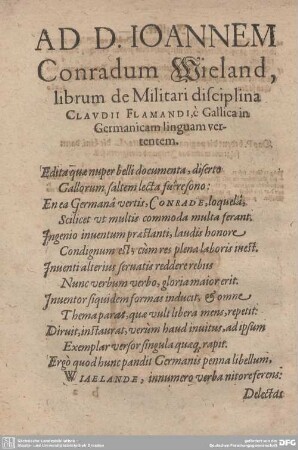 AD D. IOANNEM
Conradum Wieland,
librum de Militari disciplina
CLAVDII FLAMANDI, è Gallica in
Germanicam linguam ver-
tentem.
Edita quæ nuper belli documenta, diserto
Gallorum, saltem lecta fuêre sono:
En ea Germanâ vertis, CONRADE, loquelâ,
Scilicet vt multis commoda multa ferant.
Ingenio inventum præstanti, laudis honore
Condignum est; cùm res plena laboris inest.
Inventi alterius servatis reddere rebus
Nunc verbum verbo, gloria maior erit.
Inventor siquidem formas inducit, & omne
Thema parat, quæ vult libera mens, repetit:
Diruit, instaurat, verùm haud invitus, ad ipsum
Exemplar versor singula quæq; rapit.
Ergò quod hunc pandit Germanis penna libellum,
WIELANDE, innumero verba nitore ferens:
Delectas